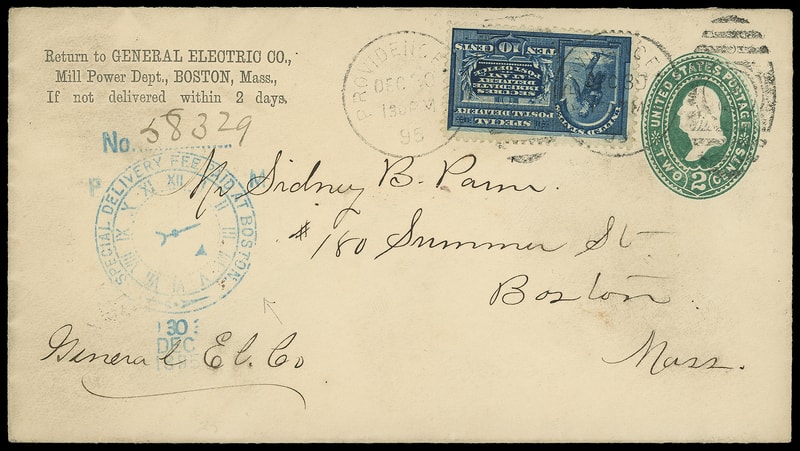 Return to GENERAL ELECTRIC CO.,
Mill Power Dept., BOSTON, Mass.,
If not delivered within 2 days.
No. 58329
SPECIAL DELIVERY FEE PAID AT BOSTON
XII
P M
30
DEC
PROVIDENCE
DEC 30
130PM
95
TEN 10 CENTS
SECURES
IMMEDIATE
DELIVERY
AT ANY
POST OFFICE
SPECIAL
POSTAL DELIVERY
UNITED STATES
UNITED STATES POSTAGE
TWO 2 CENTS
Mr Sidney B. Paine.
#180 Summer St
Boston
Mass.
General El. Co